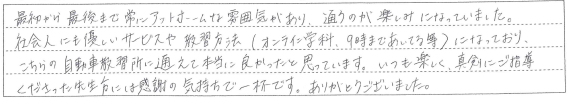 最初から最後まで常にアットホームな雰囲気があり、通うのが楽しみになっていました。
社会人にも優しいサービスや教習方法(オンライン学科、9時まであいてる等)になっており、
こちらの自動車教習所に通えて本当に良かったと思っています。いつも楽しく、真剣にご指導
くださった先生方には感謝の気持ちで一杯です。ありがとうございました。